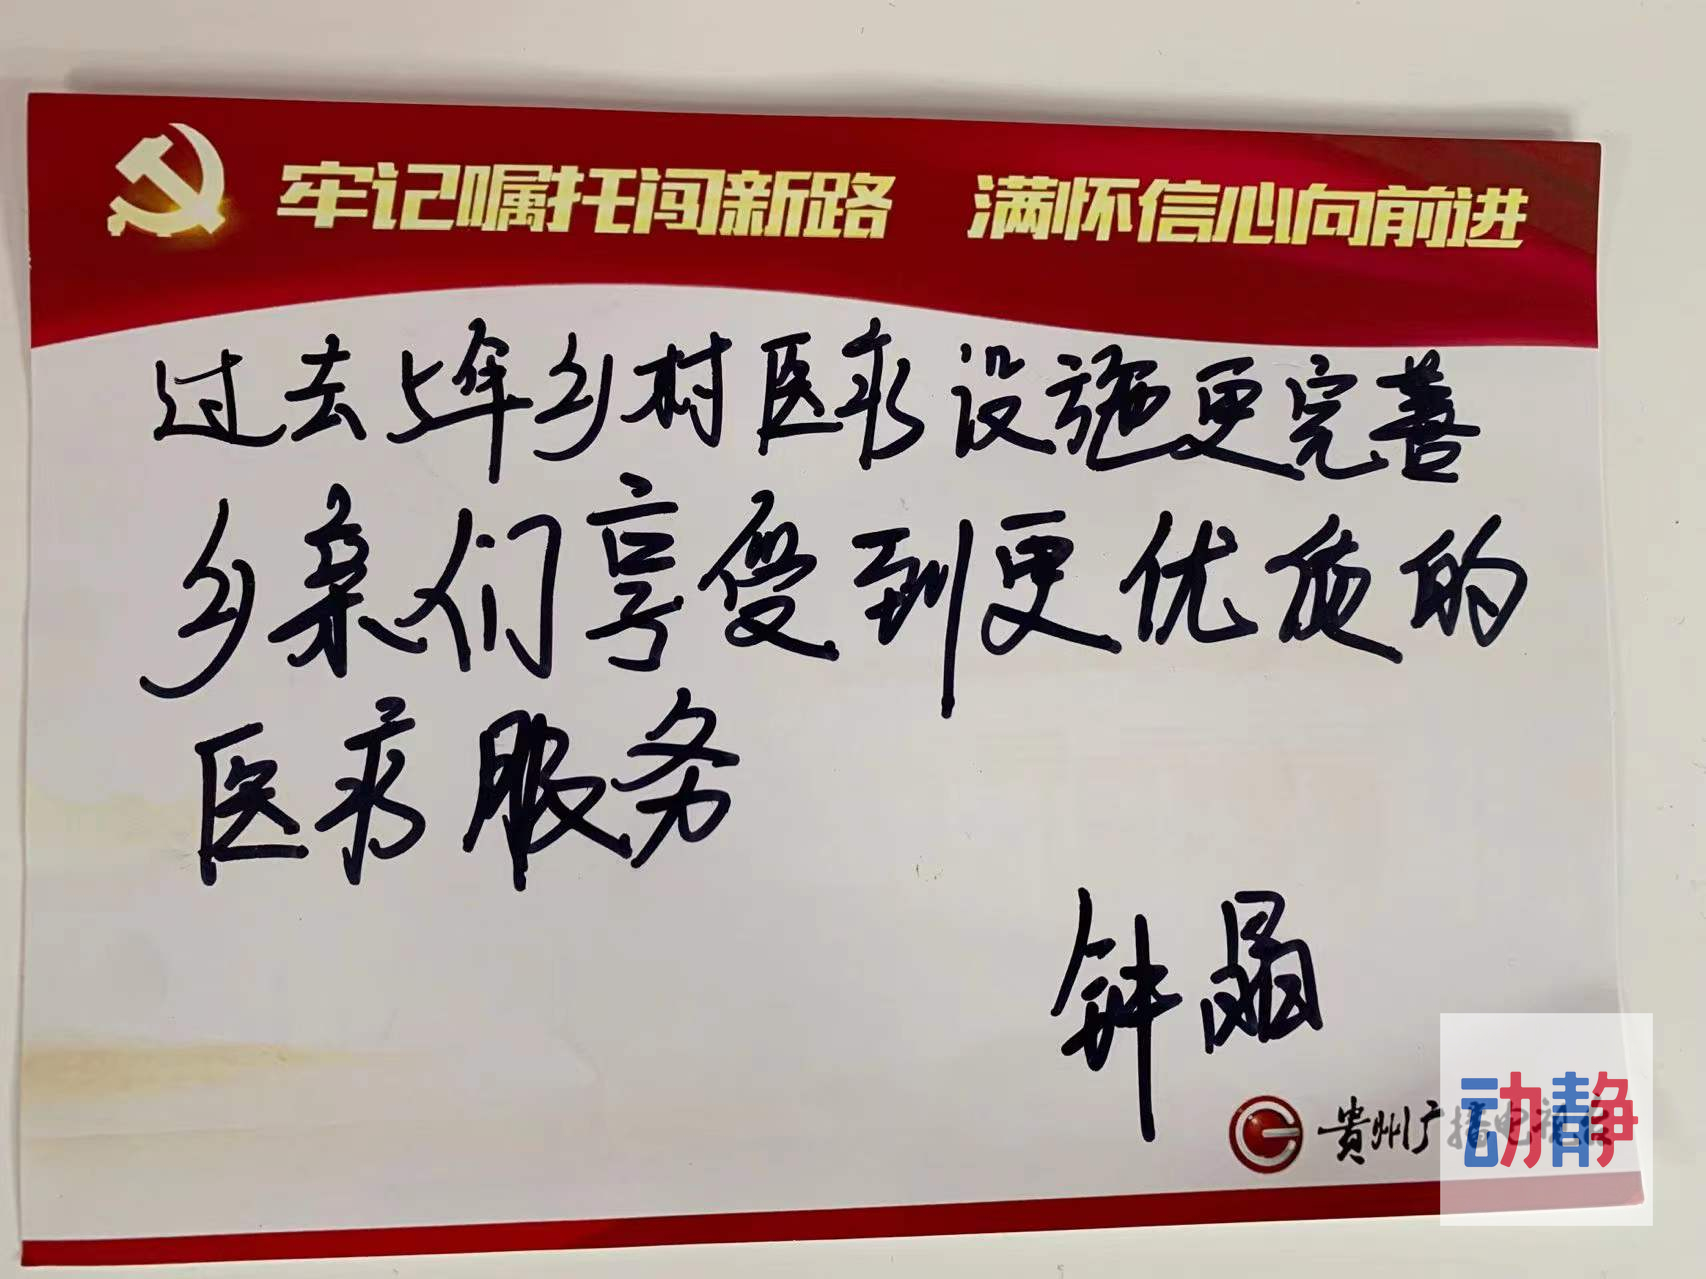 牢记嘱托闯新路 满怀信心向前进
过去5年乡村医疗设施更完善
乡亲们享受到更优质的
医疗服务
钟晶
贵州广播电视台
动静